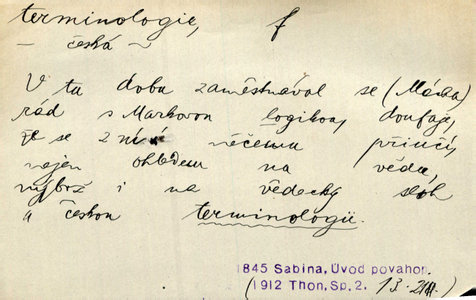 terminologie, f
— česká ~
V tu dobu zaměstnával se (Mácha)
rád s Markovou logikou, doufaje,
že se z ní něčemu přiučí,
nejen ohledem na vědu,
nýbrž i na vědecký sloh
a českou terminologii.
1845 Sabina, Úvod povahop.
(1912 Thon, Sp. 2. 13.